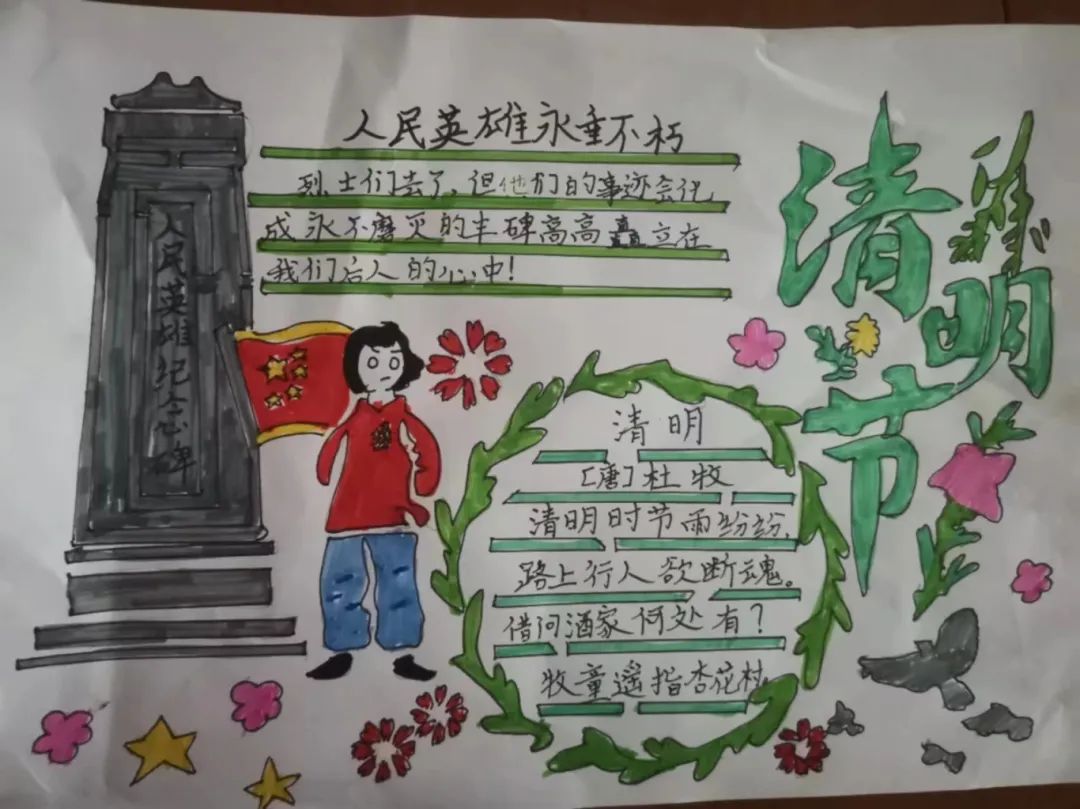 人民英雄永垂不朽
烈士们去了,但他们的事迹会化
成永不磨灭的丰碑高高矗立在
我们后人的心中!
人民英雄纪念碑
清明节
清明
[唐]杜牧
清明时节雨纷纷,
路上行人欲断魂。
借问酒家何处有?
牧童遥指杏花村